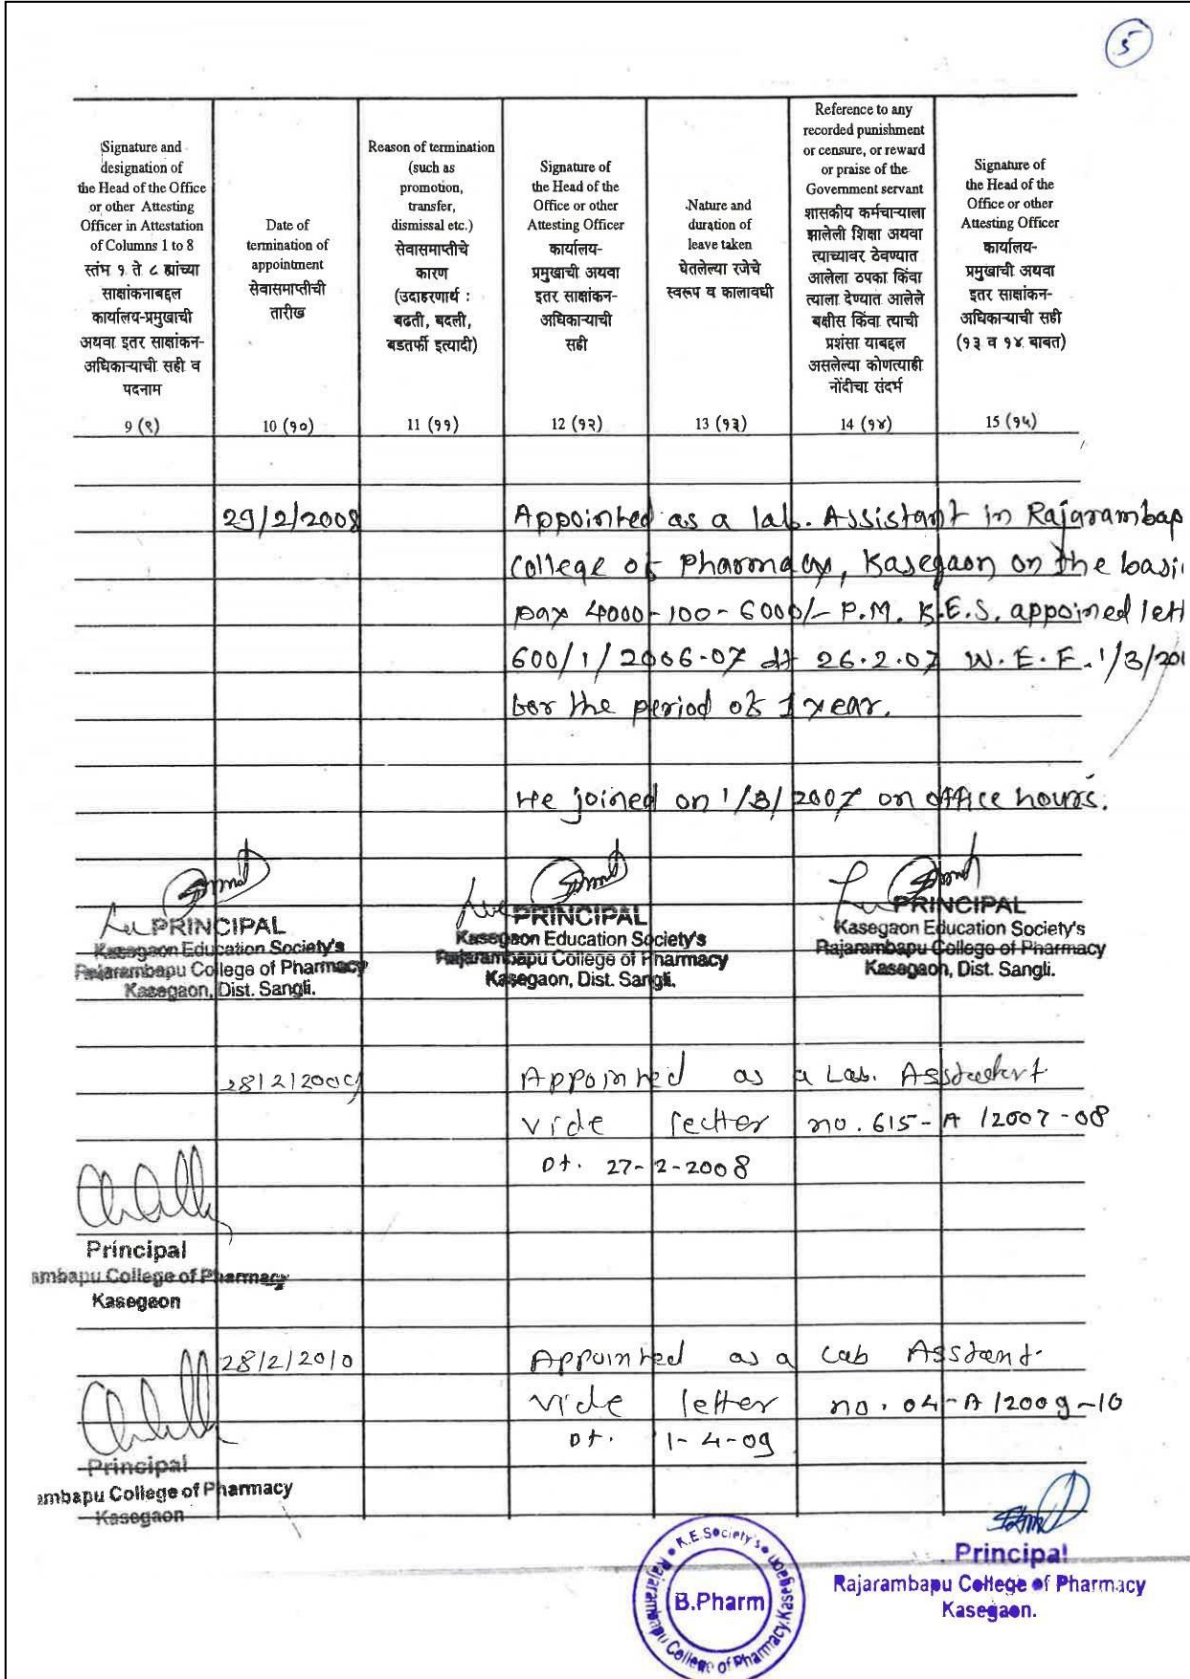 5
Signature and
designation of
the Head of the Office
or other Attesting
Officer in Attestation
of Columns 1 to 8
स्तंभ १ ते ८ ह्यांच्या
साक्षांकनाबद्दल
कार्यालय-प्रमुखाची
अथवा इतर साक्षांकन-
अधिकाऱ्याची सही व
पदनाम
9 (९)
Date of
termination of
appointment
सेवासमाप्तीची
तारीख
10 (१०)
Reason of termination
(such as
promotion,
transfer,
dismissal etc.)
सेवासमाप्तीचे
कारण
(उदाहरणार्थ :
बढती, बदली,
बडतर्फी इत्यादी)
11 (११)
Signature of
the Head of the
Office or other
Attesting Officer
कार्यालय-
प्रमुखाची अथवा
इतर साक्षांकन-
अधिकाऱ्याची
सही
12 (१२)
Nature and
duration of
leave taken
घेतलेल्या रजेचे
स्वरूप व कालावधी
13 (१३)
Reference to any
recorded punishment
or censure, or reward
or praise of the
Government servant
शासकीय कर्मचाऱ्याला
झालेली शिक्षा अथवा
त्याच्यावर ठेवण्यात
आलेला ठपका किंवा
त्याला देण्यात आलेले
बक्षीस किंवा त्याची
प्रशंसा याबद्दल
असलेल्या कोणत्याही
नोंदीचा संदर्भ
14 (१४)
Signature of
the Head of the
Office or other
Attesting Officer
कार्यालय-
प्रमुखाची अथवा
इतर साक्षांकन-
अधिकाऱ्याची सही
(१३ व १४ बाबत)
15 (१५)
29/2/2008 Appointed as a lab. Assistant in Rajarambap
College of Pharmacy, Kasegaon on the basi
pay 4000-100-6000/- P.M. K.E.S. appoined lett
600/1/2006-07 dt 26.2.07 W.E.F. 1/3/200
for the period of 1 year.
He joined on 1/3/2007 on office hours.
PRINCIPAL
Kasegaon Education Society's
Rajarambapu College of Pharmacy
Kasegaon, Dist. Sangli.
PRINCIPAL
Kasegaon Education Society's
Rajarambapu College of Pharmacy
Kasegaon, Dist. Sangli.
PRINCIPAL
Kasegaon Education Society's
Rajarambapu College of Pharmacy
Kasegaon, Dist. Sangli.
28/2/2009 Appointed as a Lab. Asstedent
vide letter no. 615-A/2007-08
Dt. 27-2-2008
Principal
ambapu College of Pharmacy
Kasegaon
28/2/2010 Appointed as a Lab Asstant.
vide letter no. 04-A/2009-10
Dt. 1-4-09
Principal
ambapu College of Pharmacy
Kasegaon
K.E.Society's
Rajarambapu College of Pharmacy, Kasegaon
B.Pharm
Principal
Rajarambapu College of Pharmacy
Kasegaon.